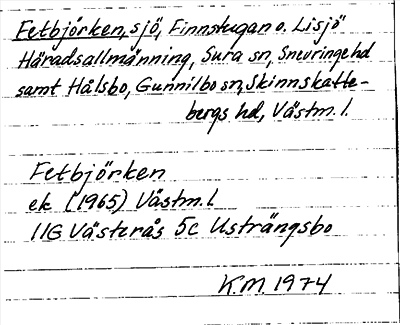 Fetbjörken, sjö, Finnstugan o. Lisjö
Häradsallmänning, Sura sn, Snevringe hd
samt Hålsbo, Gunnilbo sn, Skinnskatte-
bergs hd, Västm. l.
Fetbjörken
ek (1965) Västm. l
11G Västerås 5c Usträngsbo
K.M. 1974